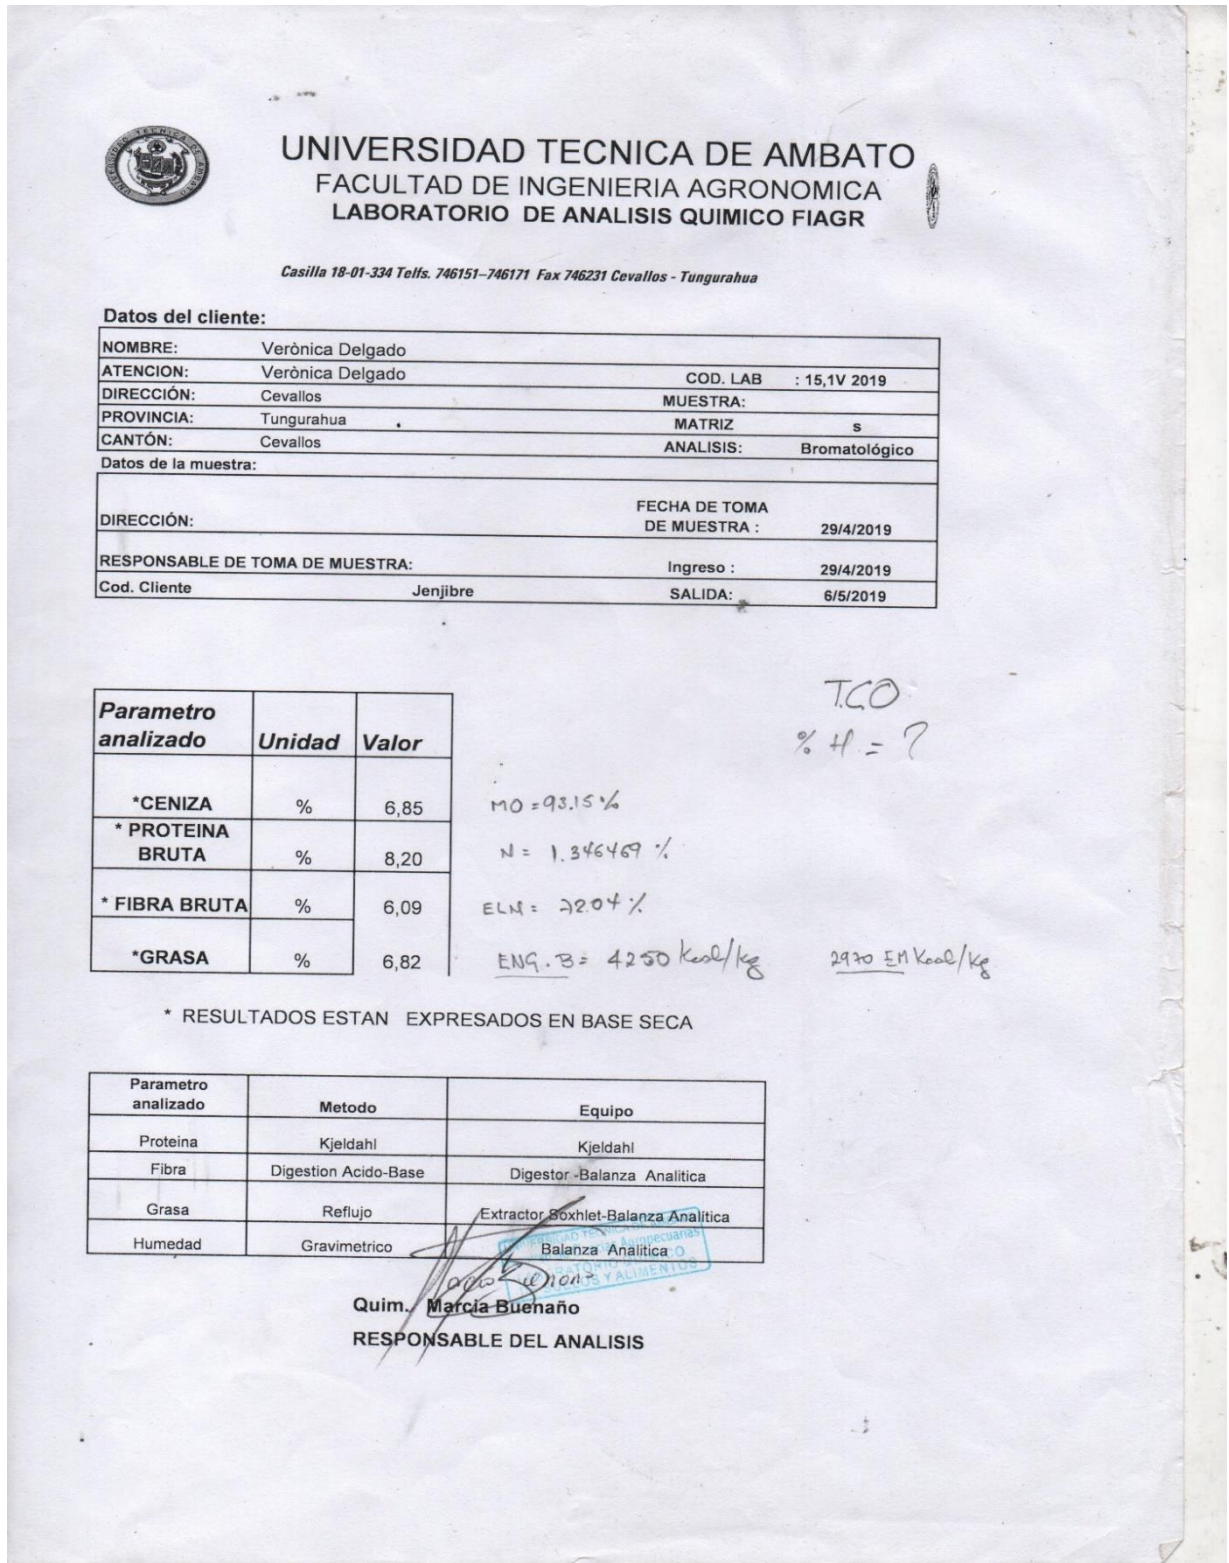 UNIVERSIDAD TECNICA DE AMBATO
FACULTAD DE INGENIERIA AGRONOMICA
LABORATORIO DE ANALISIS QUIMICO FIAGR
Casilla 18-01-334 Telfs. 746151–746171 Fax 746231 Cevallos - Tungurahua
Datos del cliente:
NOMBRE: Verònica Delgado
ATENCION: Verònica Delgado COD. LAB : 15,1V 2019
DIRECCIÓN: Cevallos MUESTRA:
PROVINCIA: Tungurahua MATRIZ s
CANTÓN: Cevallos ANALISIS: Bromatológico
Datos de la muestra:
FECHA DE TOMA
DIRECCIÓN: DE MUESTRA : 29/4/2019
RESPONSABLE DE TOMA DE MUESTRA: Ingreso : 29/4/2019
Cod. Cliente Jenjibre SALIDA: 6/5/2019
T.C.O
% H = ?
Parametro
analizado Unidad Valor
*CENIZA % 6,85 MO = 93.15 %
* PROTEINA
BRUTA % 8,20 N = 1.346469 %
* FIBRA BRUTA % 6,09 ELN = 72.04 %
*GRASA % 6,82 ENG. B = 4250 Kcal/kg 2970 EM Kcal/Kg
* RESULTADOS ESTAN EXPRESADOS EN BASE SECA
Parametro
analizado Metodo Equipo
Proteina Kjeldahl Kjeldahl
Fibra Digestion Acido-Base Digestor -Balanza Analitica
Grasa Reflujo Extractor Soxhlet-Balanza Analítica
Humedad Gravimetrico Balanza Analitica
Quim. Marcia Buenaño
RESPONSABLE DEL ANALISIS